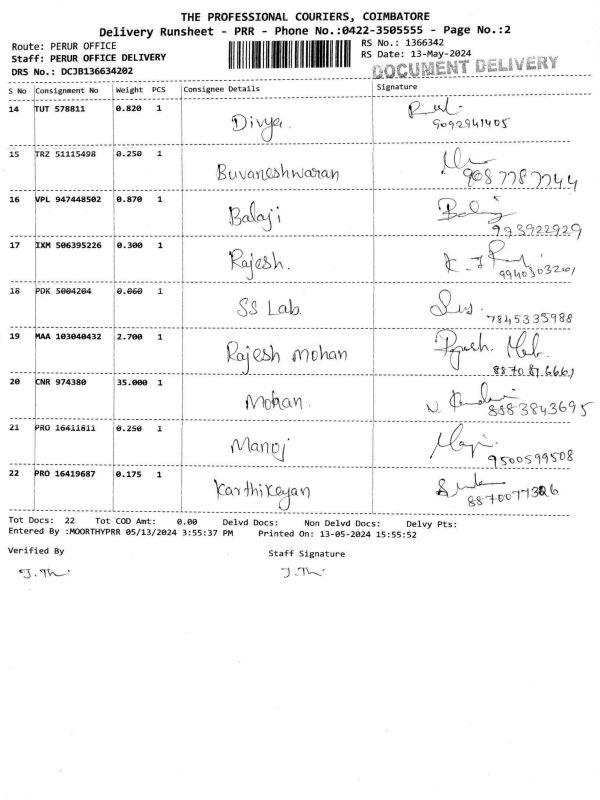 THE PROFESSIONAL COURIERS, COIMBATORE
Delivery Runsheet - PRR - Phone No.:0422-3505555 - Page No.:2
Route: PERUR OFFICE
RS No.: 1366342
Staff: PERUR OFFICE DELIVERY
RS Date: 13-May-2024
DRS No.: DCJB136634202
DOCUMENT DELIVERY
S No Consignment No Weight PCS Consignee Details Signature
14 TUT 578811 0.820 1 Divya. 9092941405
15 TRZ 51115498 0.250 1 Buvaneshwaran 9087787744
16 VPL 947448502 0.870 1 Balaji 993922929
17 IXM 506395226 0.300 1 Rajesh. 9940303201
18 PDK 5004204 0.060 1 SS Lab. 7845335988
19 MAA 103040432 2.700 1 Rajesh mohan
20 CNR 974380 35.000 1 Mohan. 8883843695
21 PRO 16411811 0.250 1 Manoj 9500599508
22 PRO 16419687 0.175 1 Karthikeyan
Tot Docs: 22 Tot COD Amt: 0.00 Delvd Docs: Non Delvd Docs: Delvy Pts:
Entered By :MOORTHYPRR 05/13/2024 3:55:37 PM Printed On: 13-05-2024 15:55:52
Verified By Staff Signature